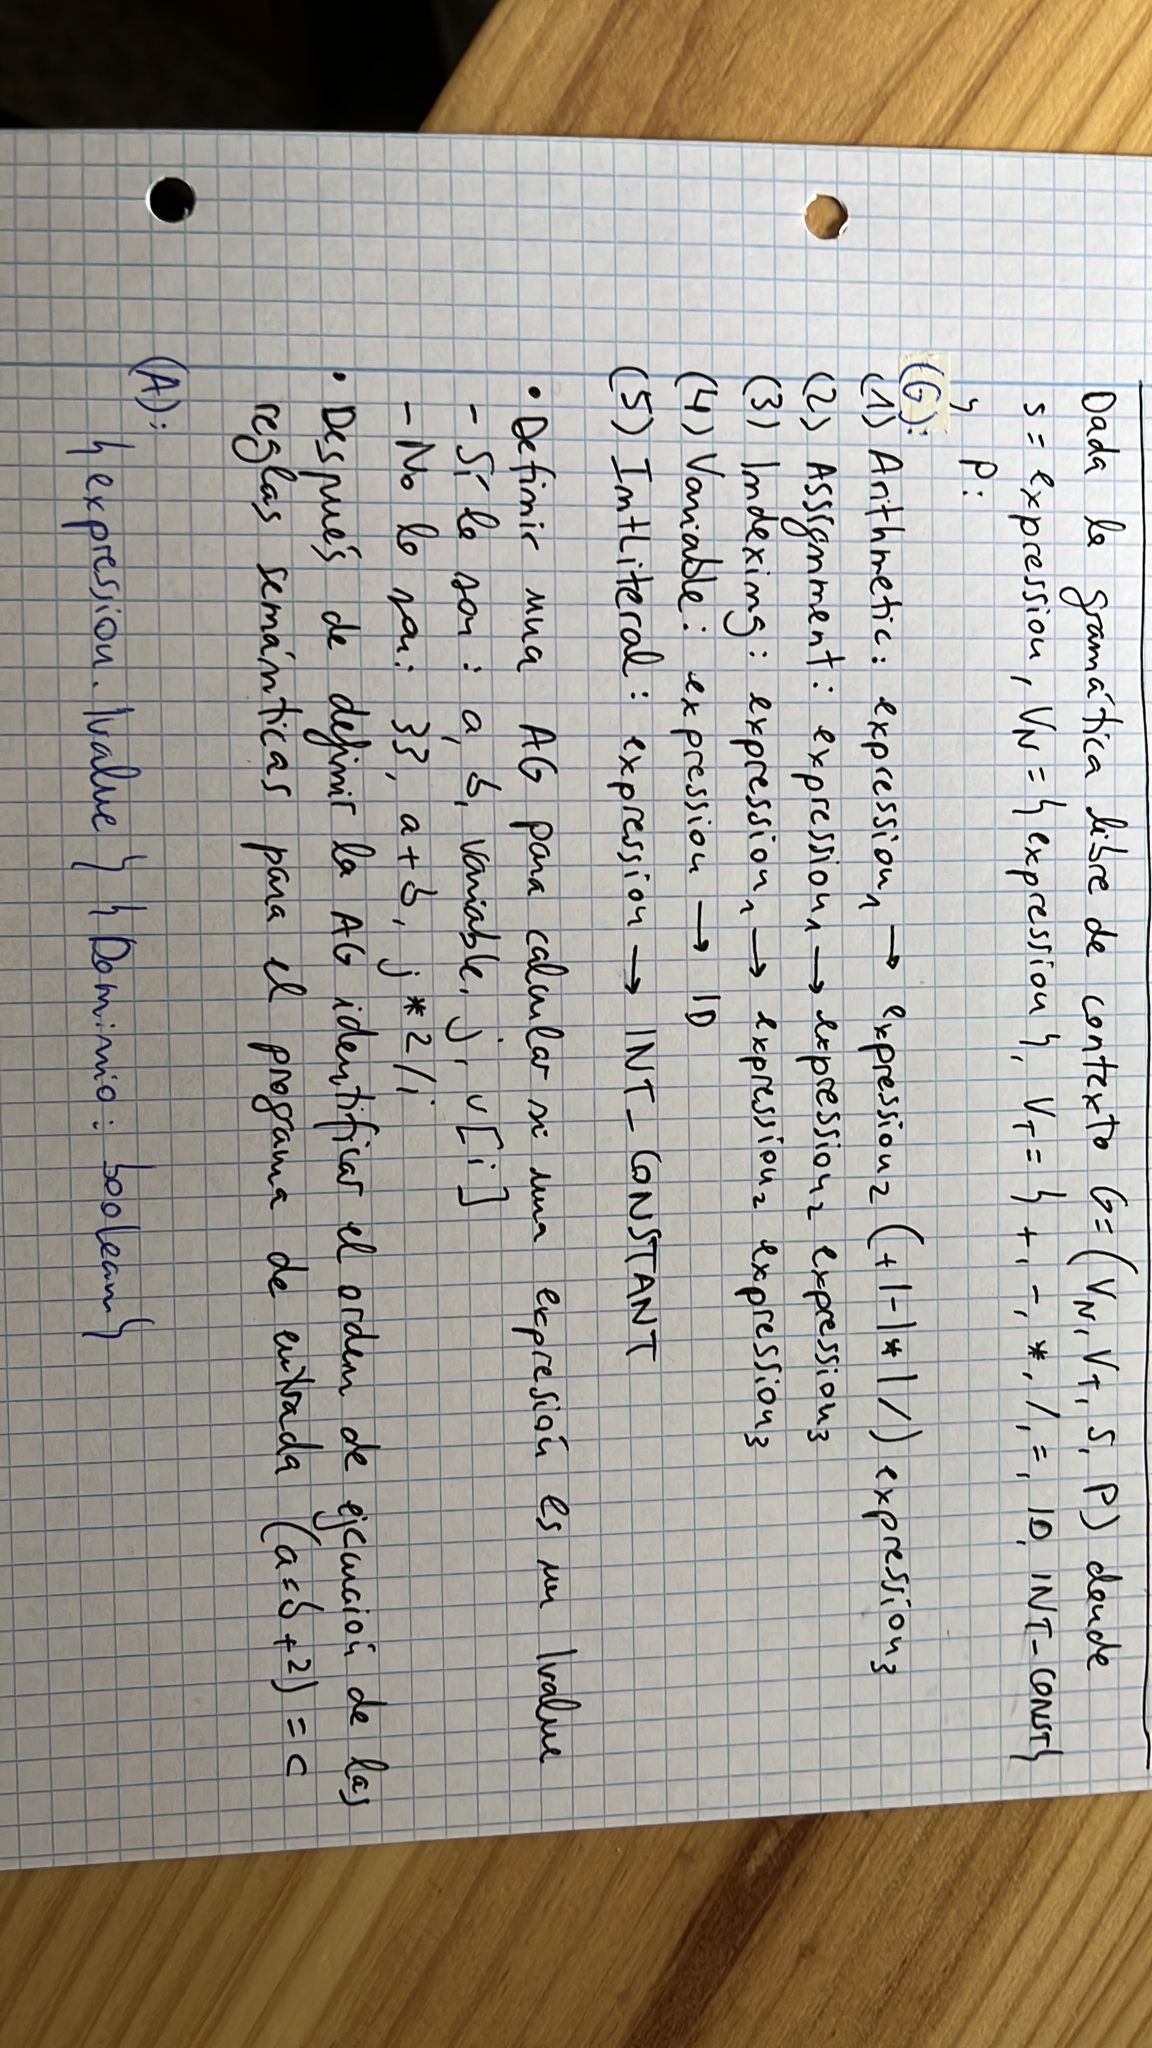 Dada la gramática libre de contexto G=(V_N, V_T, S, P) donde
s = expression, V_N = { expression }, V_T = { +, -, *, /, =, ID, INT-CONST}
y P:
(G):
(1) Arithmetic: expression₁ → expression₂ (+|-|*|/) expression₃
(2) Assignment: expression₁ → expression₂ expression₃
(3) Indexing: expression₁ → expression₂ expression₃
(4) Variable: expression → ID
(5) IntLiteral: expression → INT_CONSTANT
• Definir una AG para calcular si una expresión es un lvalue
- Sí lo son: a, b, variable, j, v[i]
- No lo son: 33, a+b, j*2/i
• Después de definir la AG identificar el orden de ejecución de las
reglas semánticas para el programa de entrada (a=b+2) = c
(A):
{ expression.lvalue } { Dominio: boolean }